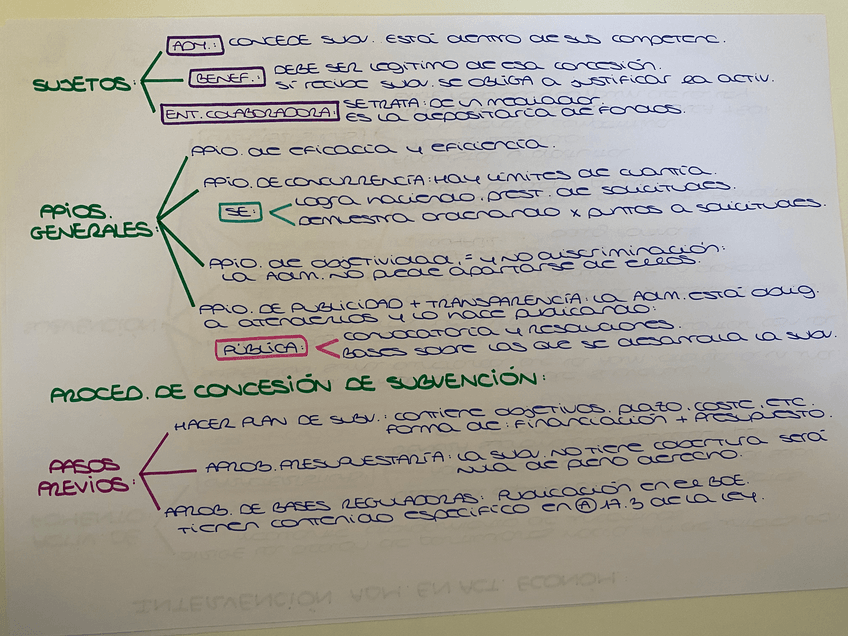 SUJETOS:
ADM.: CONCEDE SUBV. ESTÁ DENTRO DE SUS COMPETENC.
BENEF.: DEBE SER LEGÍTIMO DE ESA CONCESIÓN.
SI RECIBE SUBV. SE OBLIGA A JUSTIFICAR LA ACTIV.
ENT. COLABORADORA: SE TRATA: DE UN MEDIADOR.
ES LA DEPOSITARIA DE FONDOS.
PPIOS. GENERALES:
PPIO. DE EFICACIA Y EFICIENCIA.
PPIO. DE CONCURRENCIA: HAY LÍMITES DE CUANTÍA.
SE:
LOGRA HACIENDO. PREST. DE SOLICITUDES.
DEMUESTRA ORDENANDO X PUNTOS A SOLICITUDES.
PPIO. DE OBJETIVIDAD, = Y NO DISCRIMINACIÓN:
LA ADM. NO PUEDE APARTARSE DE ELLOS.
PPIO. DE PUBLICIDAD + TRANSPARENCIA: LA ADM. ESTÁ OBLIG.
A ATENDERLOS Y LO HACE PUBLICANDO:
PÚBLICA:
CONVOCATORIA Y RESOLUCIONES.
BASES SOBRE LAS QUE SE DESARROLLA LA SUBV.
PROCED. DE CONCESIÓN DE SUBVENCIÓN:
PASOS PREVIOS:
HACER PLAN DE SUBV.: CONTIENE OBJETIVOS. PLAZO. COSTE, ETC.
FORMA DE: FINANCIACIÓN + PRESUPUESTO.
APROB. PRESUPUESTARÍA: LA SUBV. NO TIENE COBERTURA SERÁ
NULA DE PLENO DERECHO.
APROB. DE BASES REGULADORAS: PUBLICACIÓN EN EL BOE.
TIENEN CONTENIDO ESPECÍFICO EN Ⓐ 17.3 DE LA LEY.
INTERVENCIÓN ADM. EN ACT. ECONÓM.